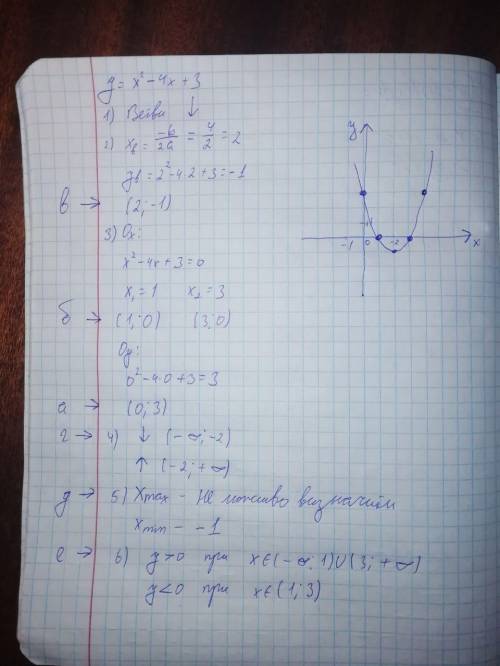 y = x² - 4x + 3
1) Ветви ↓
2) xв = -b/2a = 4/2 = 2
yв = 2² - 4·2 + 3 = -1
в → (2; -1)
3) Ox:
x² - 4x + 3 = 0
x₁ = 1 x₂ = 3
б → (1; 0) (3; 0)
Oy:
0² - 4·0 + 3 = 3
а → (0; 3)
г → 4) ↓ (-∞; -2)
↑ (-2; +∞)
д → 5) Xmax - не можливо визначити
Xmin - -1
е → 6) y>0 при x∈(-∞; 1)∪(3; +∞)
y<0 при x∈(1; 3)
y
-1 0 -2 x